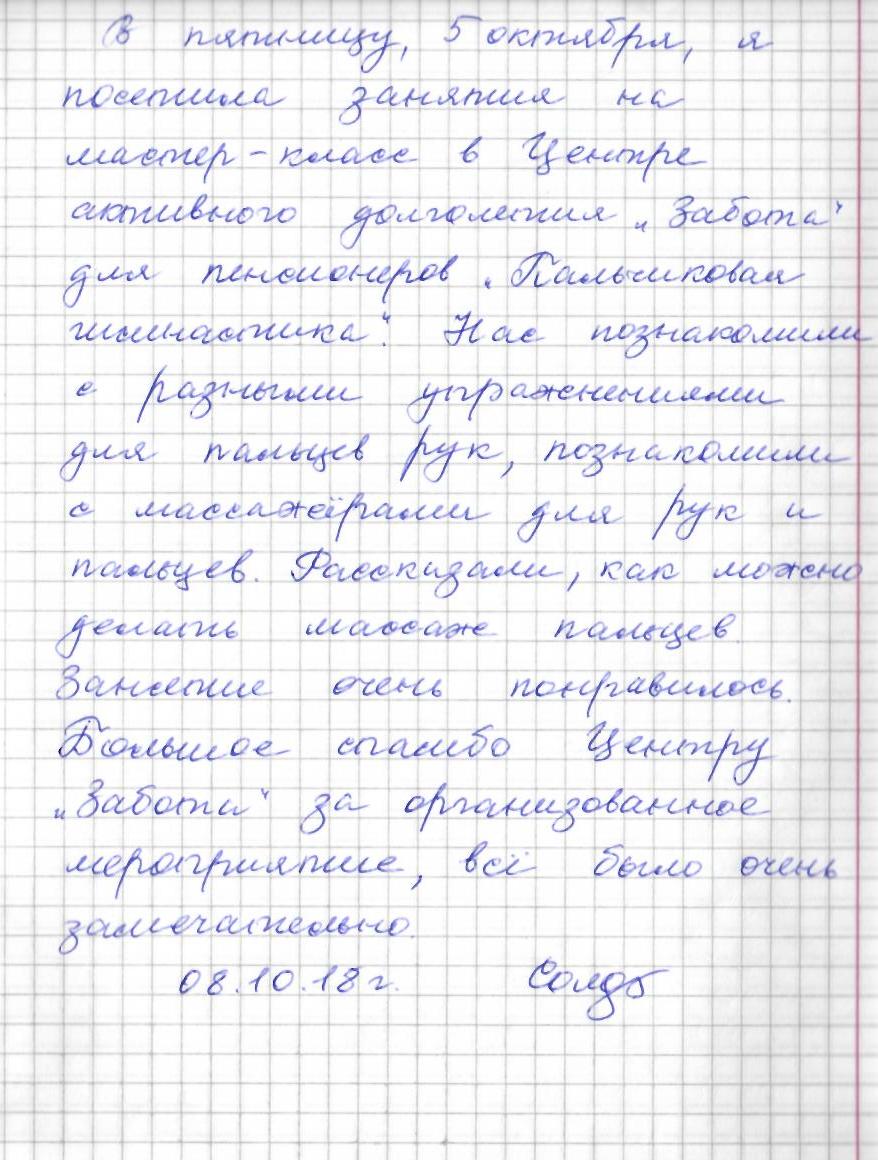 В пятницу, 5 октября, я
посетила занятия на
мастер-класс в Центре
активного долголетия „Забота“
для пенсионеров „Пальчиковая
гимнастика“. Нас познакомили
с разными упражнениями
для пальцев рук, познакомили
с массажёрами для рук и
пальцев. Рассказали, как можно
делать массаж пальцев.
Занятие очень понравилось.
Большое спасибо Центру
„Забота“ за организованное
мероприятие, всё было очень
замечательно.
08.10.18 г.